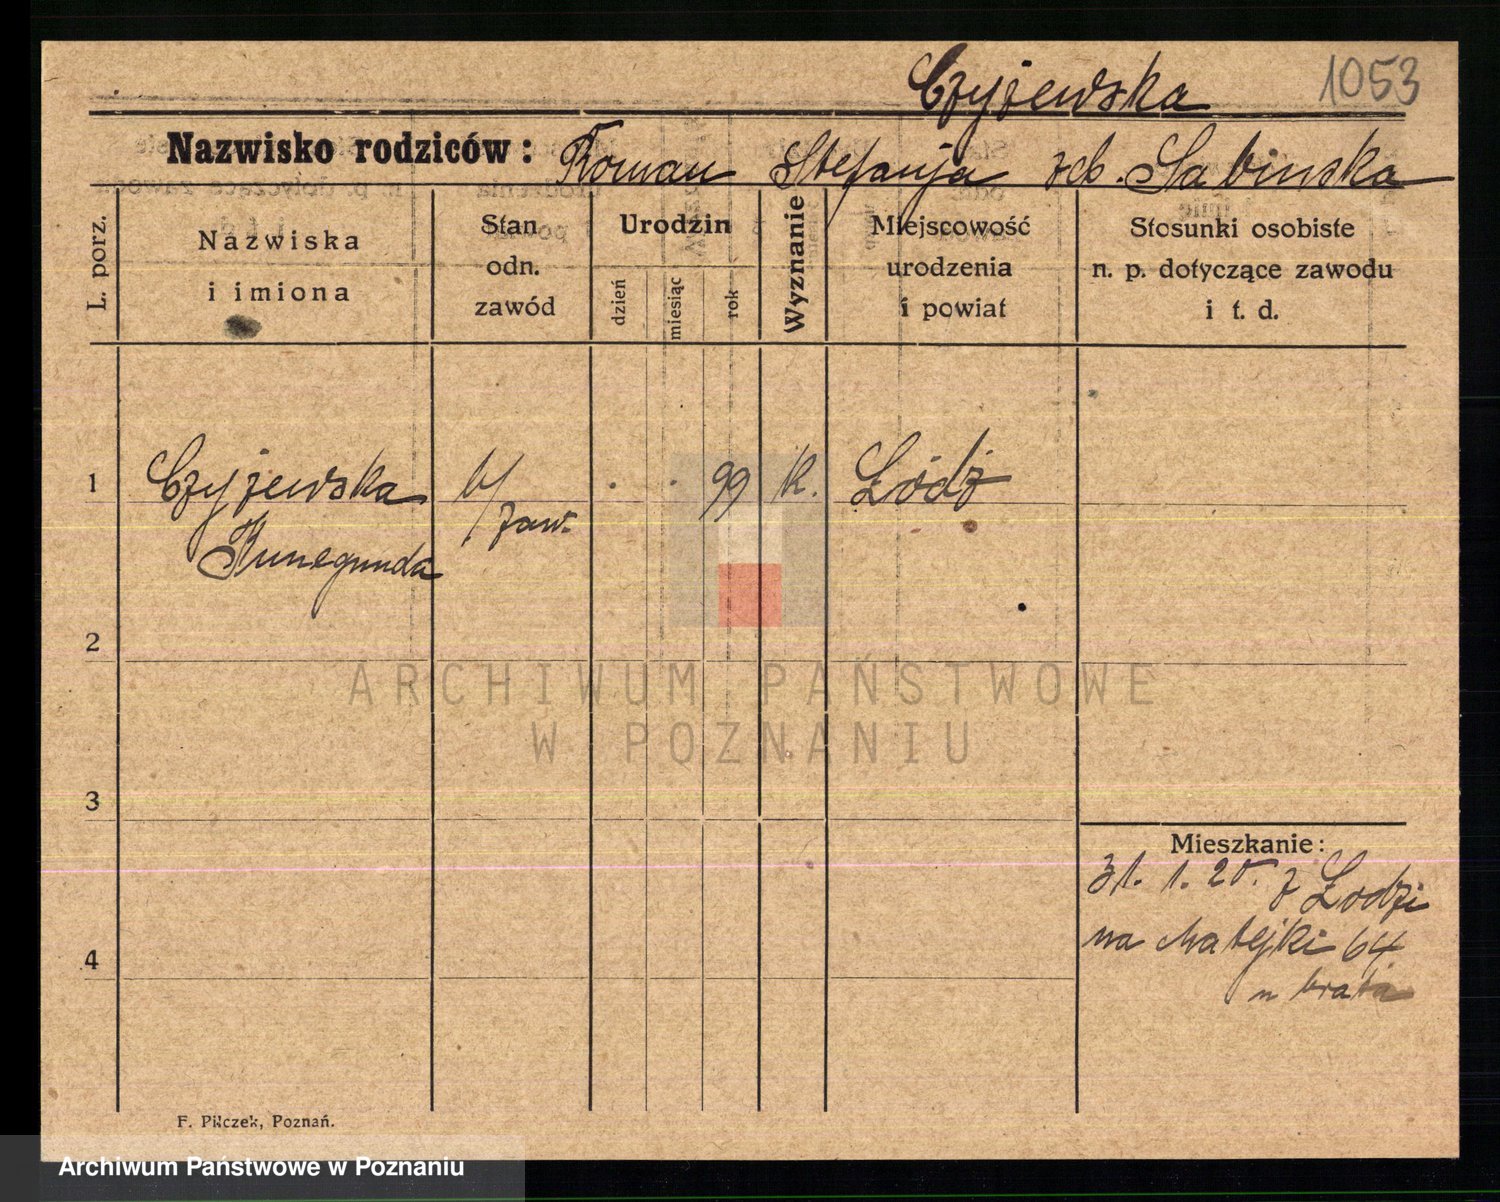 Czyżewska 1053
Nazwisko rodziców: Roman Stefanja zcb. Sabinska
L. porz.
Nazwiska
i imiona
Stan
odn.
zawód
Urodzin
dzień
miesiąc
rok
Wyznanie
Miejscowość
urodzenia
i powiat
Stosunki osobiste
n. p. dotyczące zawodu
i t. d.
1 Czyżewska b/ . . 99 k. Łódź
Kunegunda zaw.
2
3
4
Mieszkanie:
31. 1. 20. z Łodzi
na Matejki 64
u brata
F. Pilczek, Poznań.
ARCHIWUM PAŃSTWOWE
W POZNANIU
Archiwum Państwowe w Poznaniu